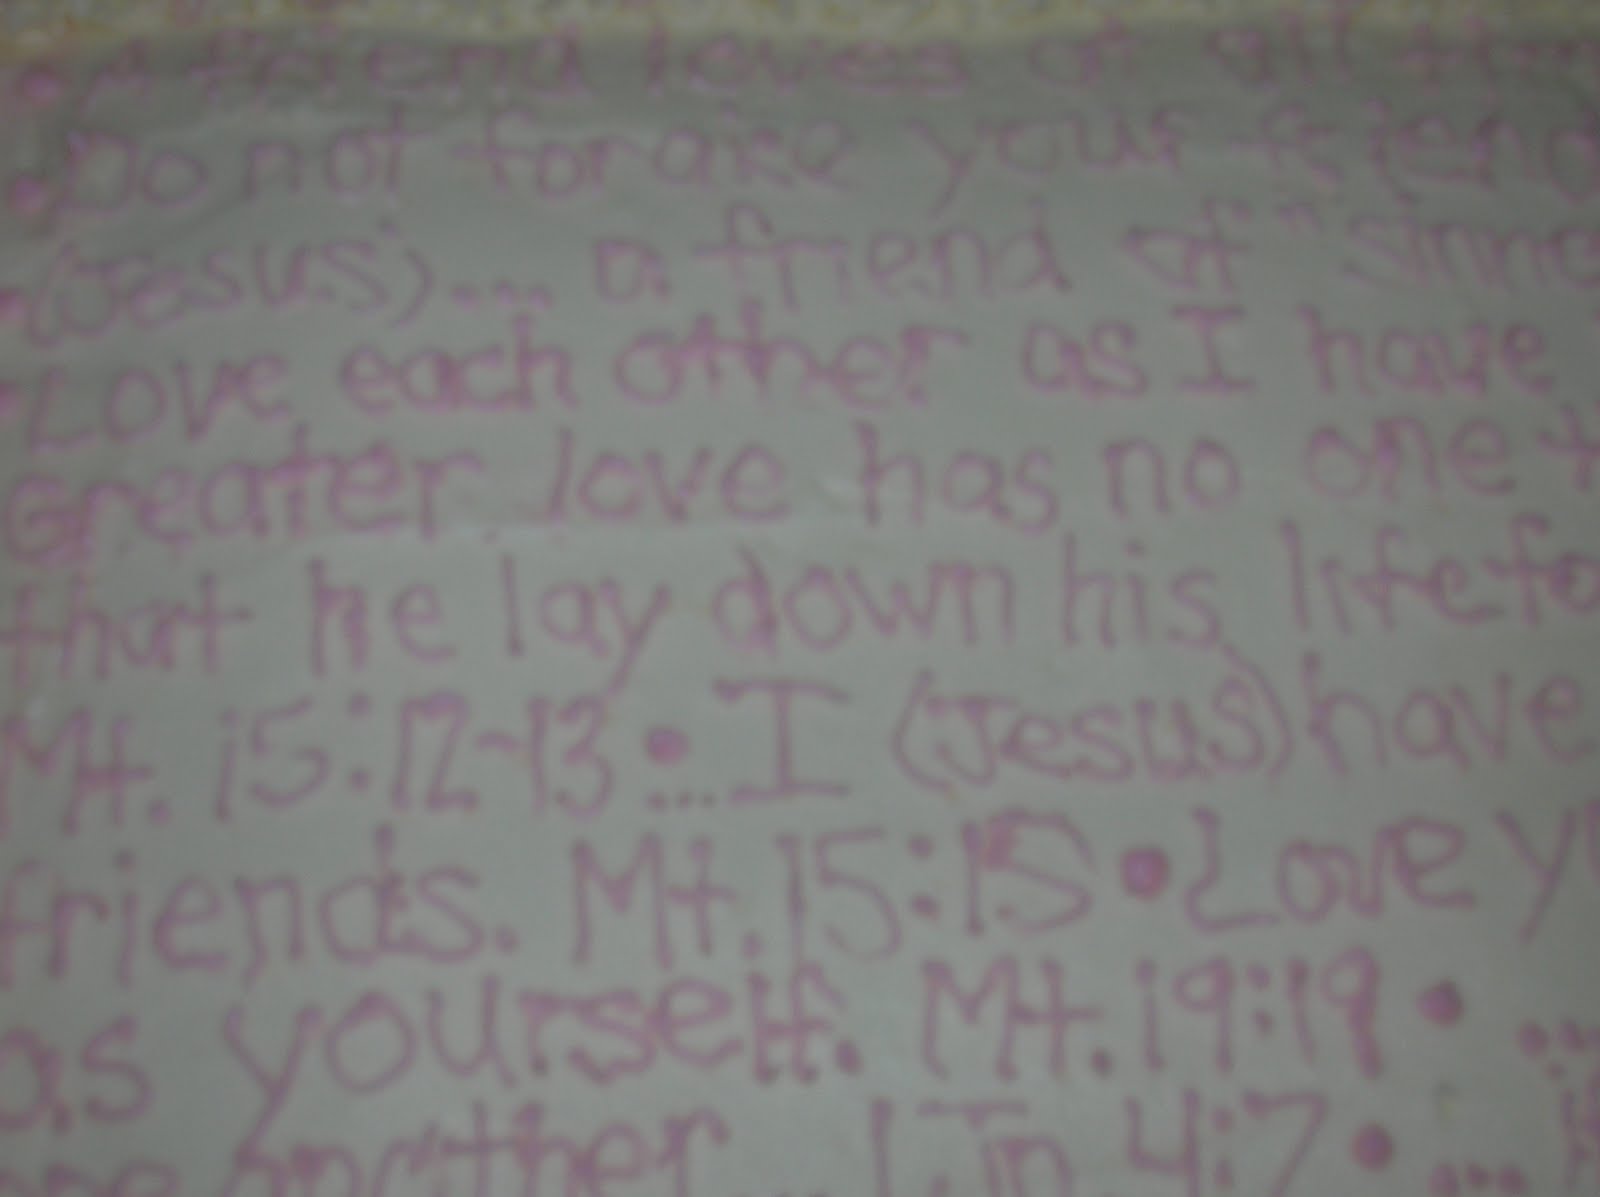 • A friend loves at all
• Do not forake your friend
• (Jesus)... a friend of "sinne
• Love each other as I have
Greater love has no one t
that he lay down his life fo
Mt. 15:12-13 • ...I (Jesus) have
friends. Mt. 15:15 • Love y
as yourself. Mt. 19:19 • ...
one another... 1 Jn 4:7 • ...